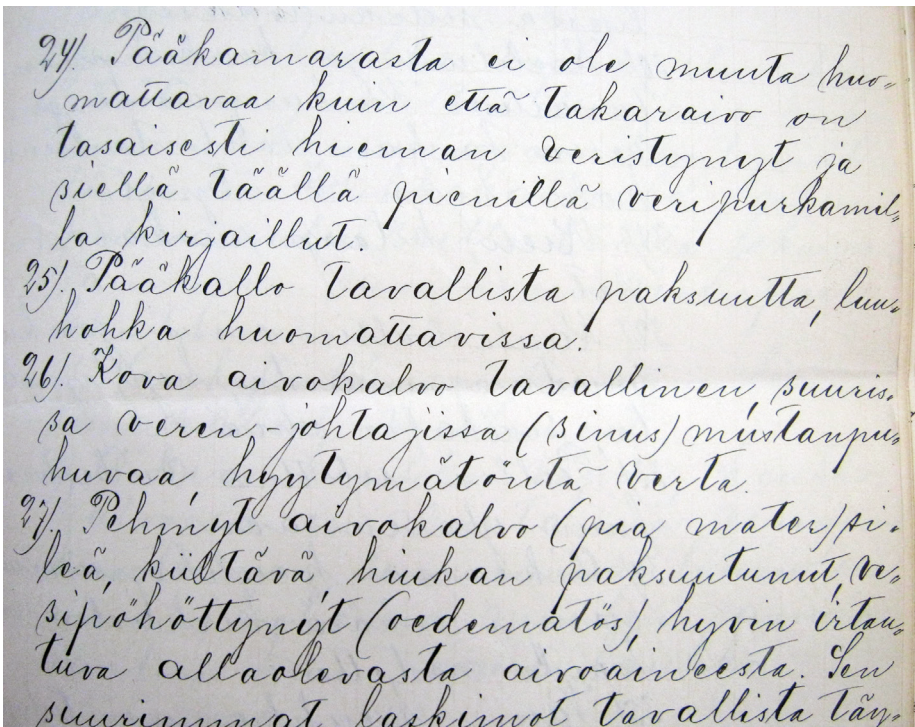 24). Pääkamarasta ei ole muuta huo-
mattavaa kuin että takaraivo on
tasaisesti hieman veristynyt ja
siellä täällä pienillä veripurkamil-
la kirjaillut.
25). Pääkallo tavallista paksuutta, luu-
hohka huomattavissa.
26). Kova aivokalvo tavallinen, suuris-
sa veren-johtajissa (sinus) mustanpu-
huvaa, hyytymätöntä verta.
27). Pehmyt aivokalvo (pia mater) si-
leä, kiiltävä, hiukan paksuutunut, ve-
sipöhöttynyt (oedematös), hyvin irtau-
tuva allaolevasta aivoaineesta. Sen
suurimmat laskimot tavallista täy-